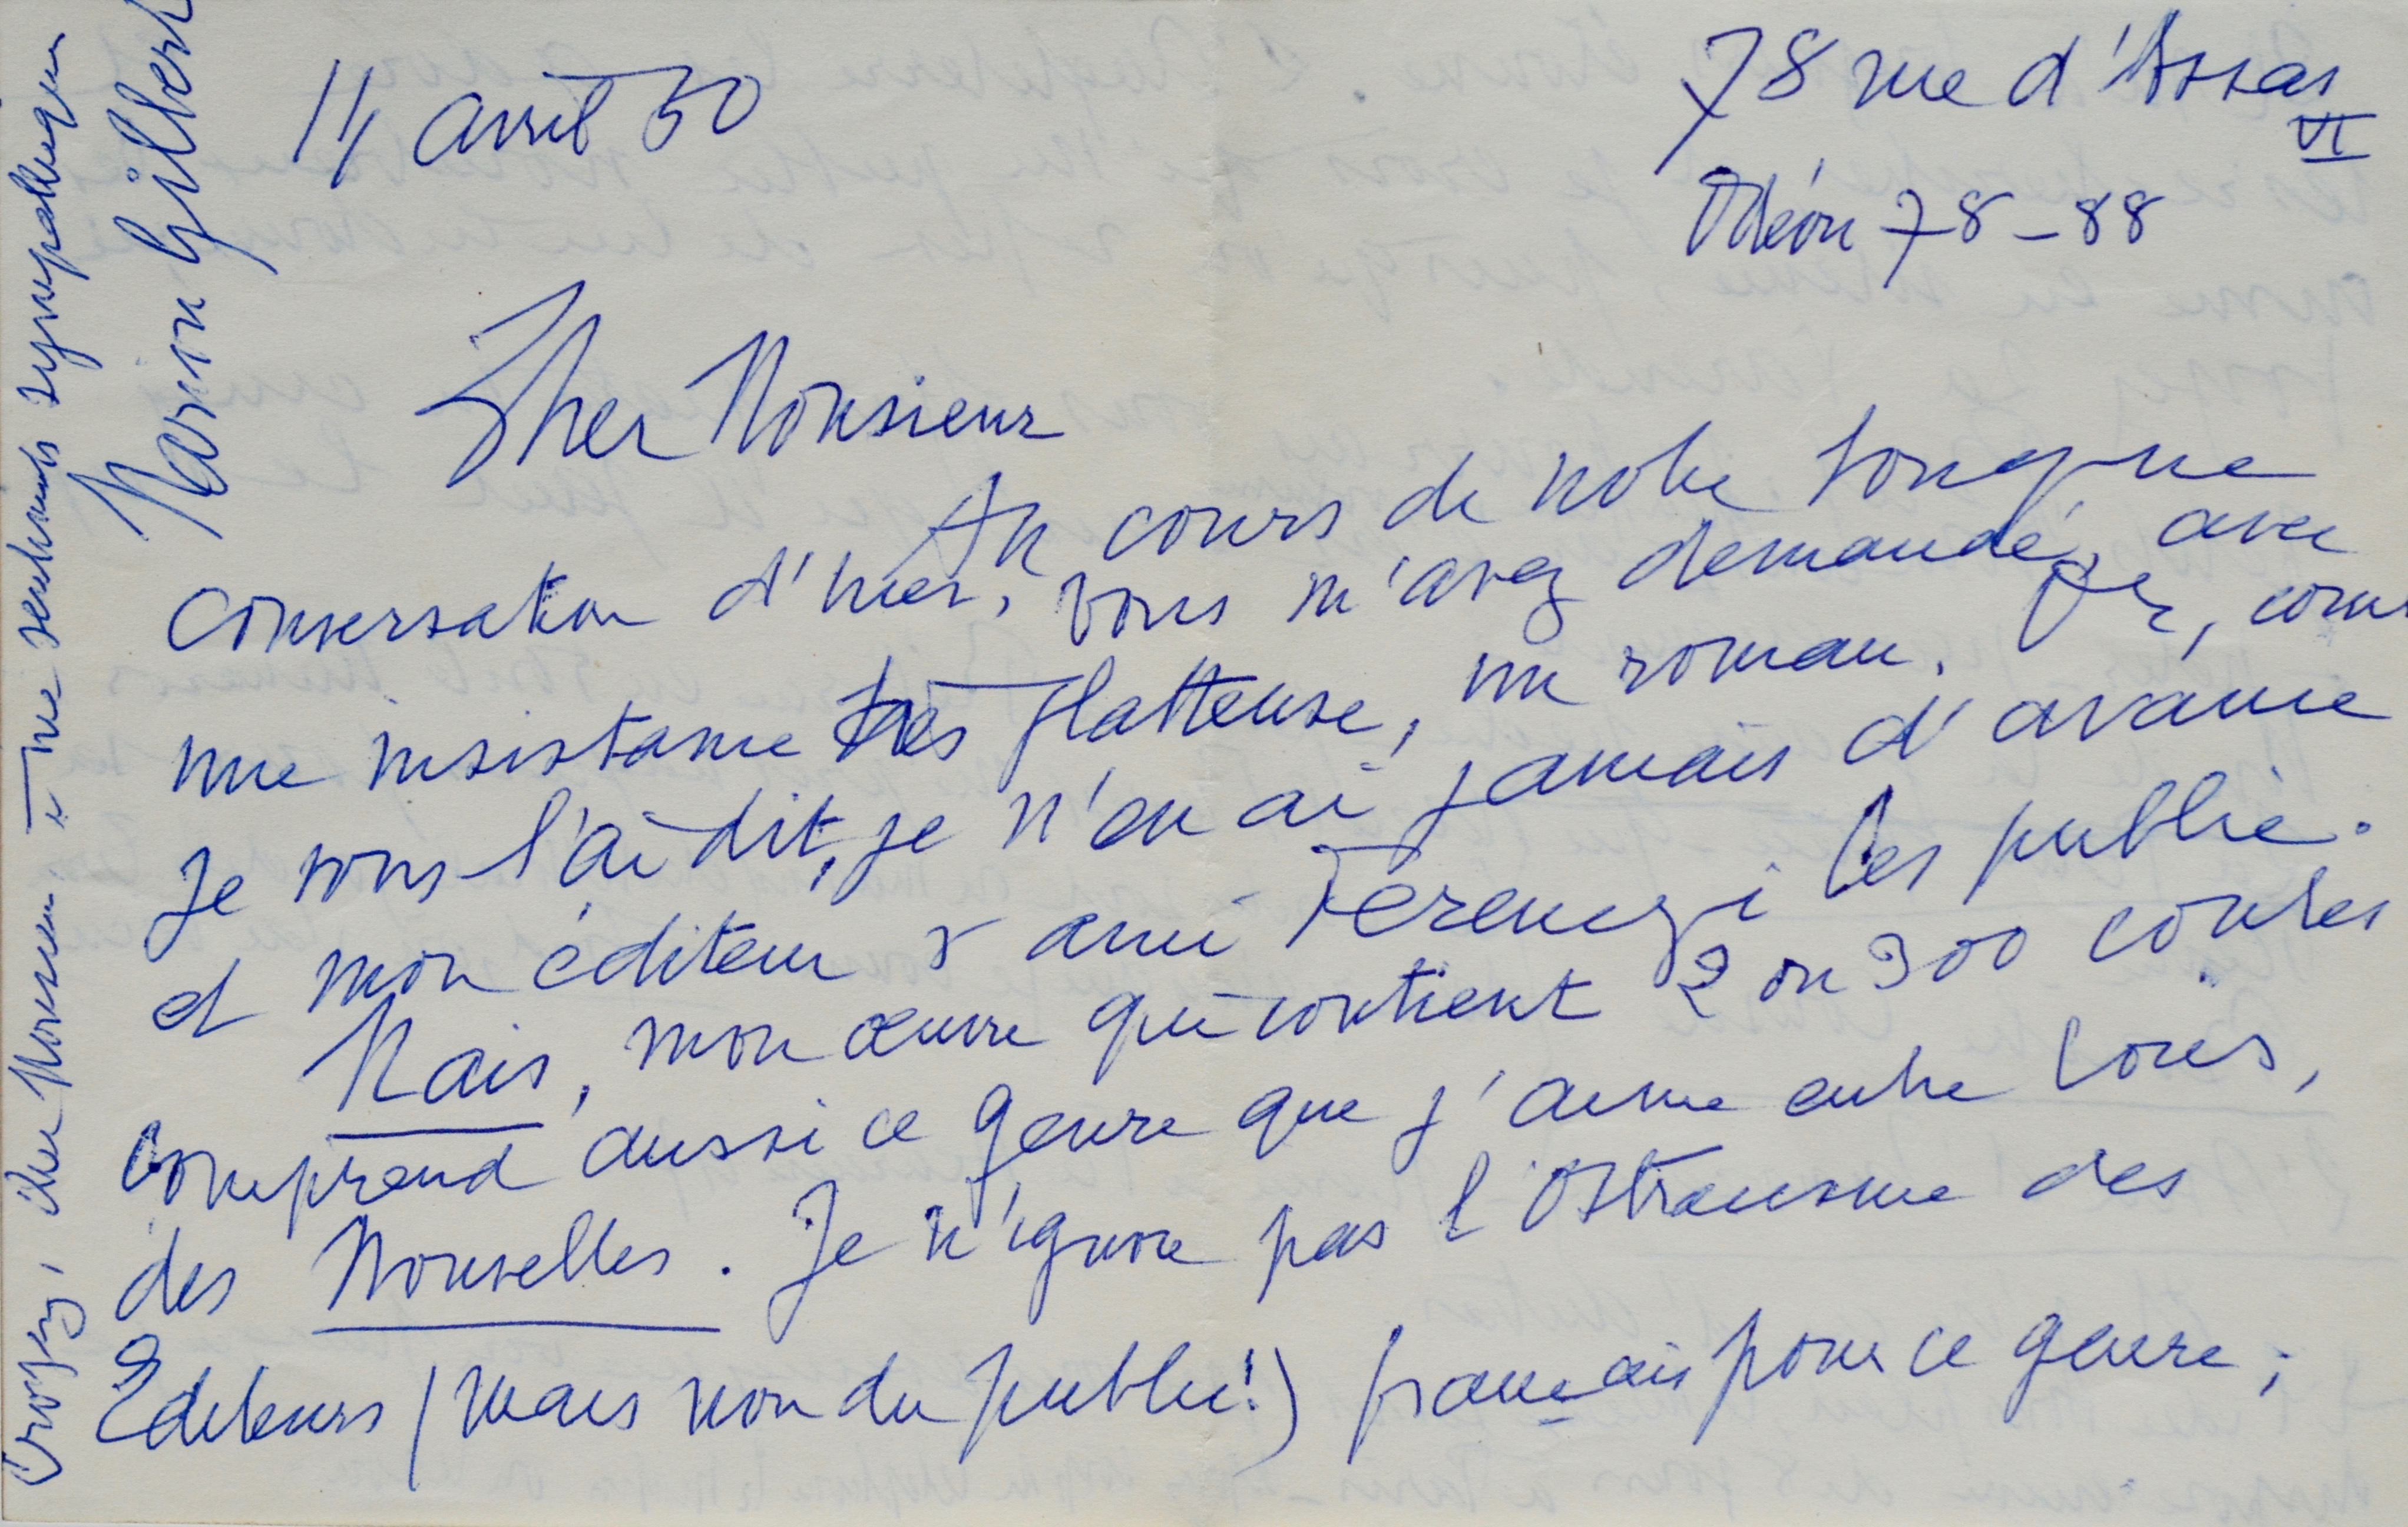 11 avril 50
78 rue d'Assas
VI
Odéon 78-88
Cher Monsieur
Au cours de notre longue
conversation d'hier, vous m'avez demandé, avec
une insistance très flatteuse, un roman. Or, comme
je vous l'ai dit, je n'en ai jamais d'avance
et mon éditeur & ami Ferenczi les publie.
Mais, mon œuvre qui contient 2 ou 300 contes
comprend aussi ce genre que j'aime entre tous,
des Nouvelles. Je n'ignore pas l'ostracisme des
Editeurs (mais non du public!) français pour ce genre;
Croyez, cher Monsieur, à mes sentiments sympathiques
Marion Gilbert